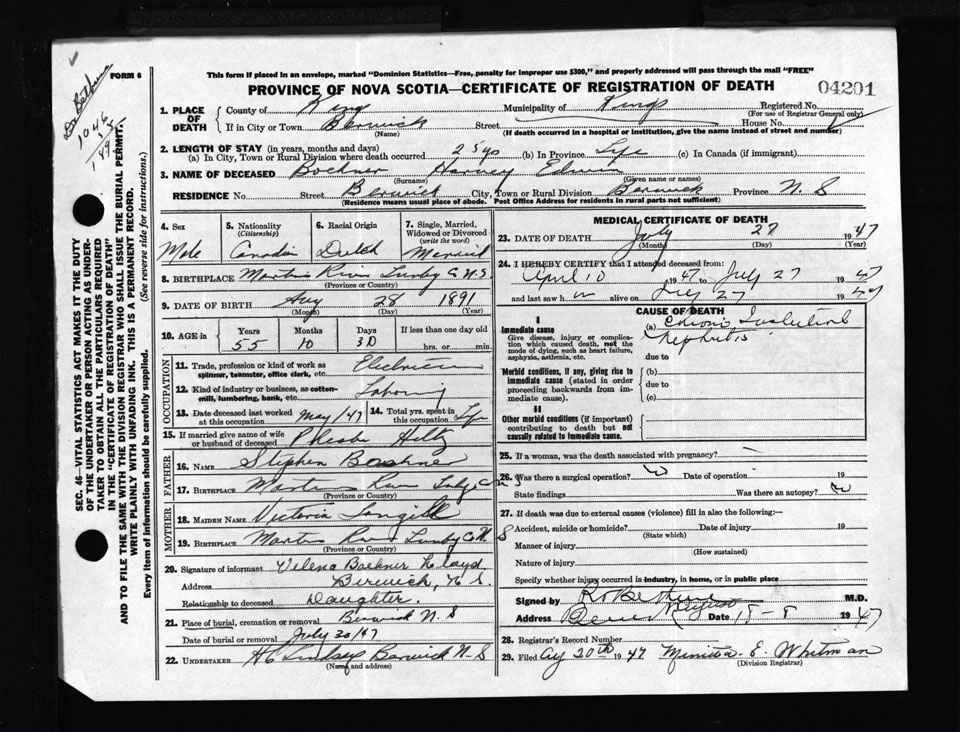 Dr Bethune
1046
35
1/49
FORM 6
This form if placed in an envelope, marked "Dominion Statistics—Free, penalty for improper use $300," and properly addressed will pass through the mail "FREE"
PROVINCE OF NOVA SCOTIA—CERTIFICATE OF REGISTRATION OF DEATH
04201
1. PLACE OF DEATH
County of Kings Municipality of Kings Registered No.
(For use of Registrar General only)
If in City or Town Berwick Street House No.
(Name) (If death occurred in a hospital or institution, give the name instead of street and number)
2. LENGTH OF STAY (in years, months and days)
(a) In City, Town or Rural Division where death occurred 25 yrs (b) In Province Life (c) In Canada (if immigrant)
3. NAME OF DECEASED Boehner Harvey Edwin
(Surname) (Given name or names)
RESIDENCE No. Street Berwick City, Town or Rural Division Berwick Province N. S
(Residence means usual place of abode. Post Office Address for residents in rural parts not sufficient)
4. Sex Male
5. Nationality (Citizenship) Canadian
6. Racial Origin Dutch
7. Single, Married, Widowed or Divorced (write the word) Married
8. BIRTHPLACE Martins River Lunby Co N. S
(Province or County)
9. DATE OF BIRTH Aug 28 1891
(Month) (Day) (Year)
10. AGE in Years Months Days If less than one day old
55 10 30 hrs. or min.
OCCUPATION
11. Trade, profession or kind of work as spinner, teamster, office clerk, etc. Electrician
12. Kind of industry or business, as cotton-mill, lumbering, bank, etc. Laboring
13. Date deceased last worked at this occupation May/47
14. Total yrs. spent in this occupation Life
15. If married give name of wife or husband of deceased Pheobe Hiltz
FATHER
16. NAME Stephen Boehner
17. BIRTHPLACE Martins River Lunby Co N. S
(Province or County)
MOTHER
18. MAIDEN NAME Victoria Langille
19. BIRTHPLACE Martins River Lunby Co N. S
(Province or County)
20. Signature of informant Velena Boehner Lloyd
Address Berwick, N. S.
Relationship to deceased Daughter.
21. Place of burial, cremation or removal Berwick N. S
Date of burial or removal July 30/47
22. UNDERTAKER H C Lindsay Berwick N-S
(Name and address)
MEDICAL CERTIFICATE OF DEATH
23. DATE OF DEATH July 27 1947
(Month) (Day) (Year)
24. I HEREBY CERTIFY that I attended deceased from:
April 10 1947 to July 27 1947
and last saw him alive on July 27 1947
CAUSE OF DEATH
I
Immediate cause (a) Chronic Interstitial
Nephritis
Give disease, injury or complication which caused death, not the mode of dying, such as heart failure, asphyxia, asthenia, etc. due to
Morbid conditions, if any, giving rise to immediate cause (stated in order proceeding backwards from immediate cause). (b)
due to
(c)
II
Other morbid conditions (if important) contributing to death but not causally related to immediate cause.
25. If a woman, was the death associated with pregnancy?
26. Was there a surgical operation? No Date of operation 19
State findings Was there an autopsy? No
27. If death was due to external causes (violence) fill in also the following:—
Accident, suicide or homicide? Date of injury 19
(State which)
Manner of injury
(How sustained)
Nature of injury
Specify whether injury occurred in industry, in home, or in public place
Signed by M.D.
Address Date 1947
28. Registrar's Record Number
29. Filed Aug 20th 1947 E. Whitman
(Division Registrar)
SEC. 46—VITAL STATISTICS ACT MAKES IT THE DUTY
OF THE UNDERTAKER OR PERSON ACTING AS UNDER-
TAKER TO OBTAIN ALL THE PARTICULARS REQUIRED
IN THE "CERTIFICATE OF REGISTRATION OF DEATH"
AND TO FILE THE SAME WITH THE DIVISION REGISTRAR WHO SHALL ISSUE THE BURIAL PERMIT.
WRITE PLAINLY WITH UNFADING INK. THIS IS A PERMANENT RECORD.
Every item of information should be carefully supplied. (See reverse side for instructions.)